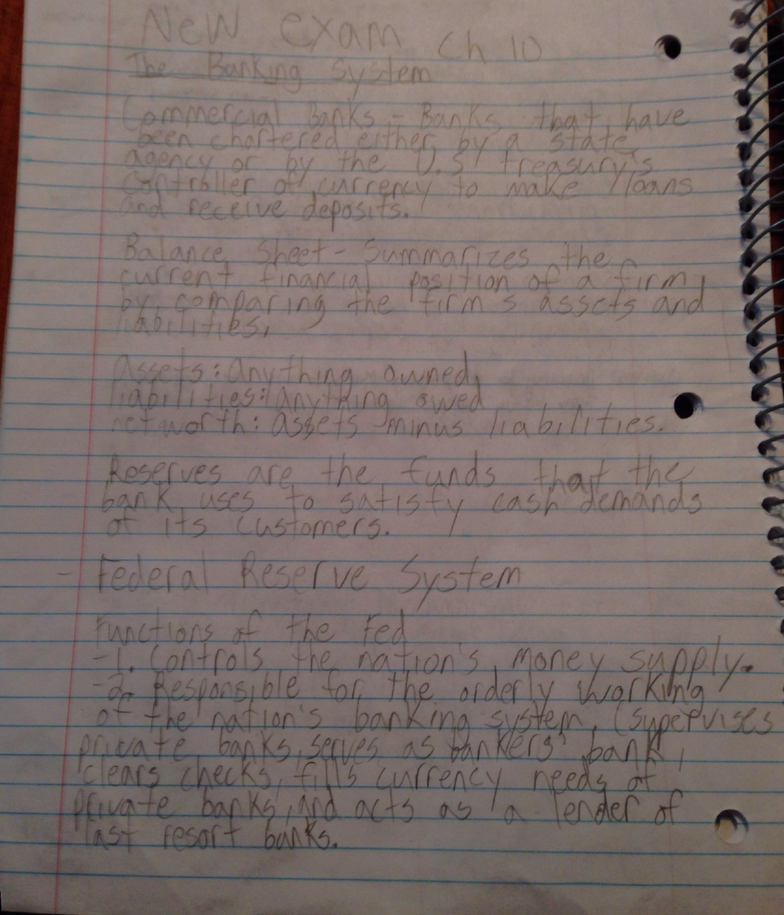 New exam Ch 10
The Banking System
Commercial Banks - Banks that have
been chartered either by a state
agency or by the U.S Treasury's
controller of currency to make loans
and receive deposits.
Balance Sheet - Summarizes the
current financial position of a firm
by comparing the firm's assets and
liabilities.
Assets: anything owned,
liabilities: anything owed
net worth: assets minus liabilities.
Reserves are the funds that the
bank uses to satisfy cash demands
of its customers.
- Federal Reserve System
Functions of the Fed
-1. Controls the nation's money supply.
-2. Responsible for the orderly working
of the nation's banking system. (supervises
private banks, serves as bankers' bank,
clears checks, fills currency needs of
private banks, and acts as a lender of
last resort banks.